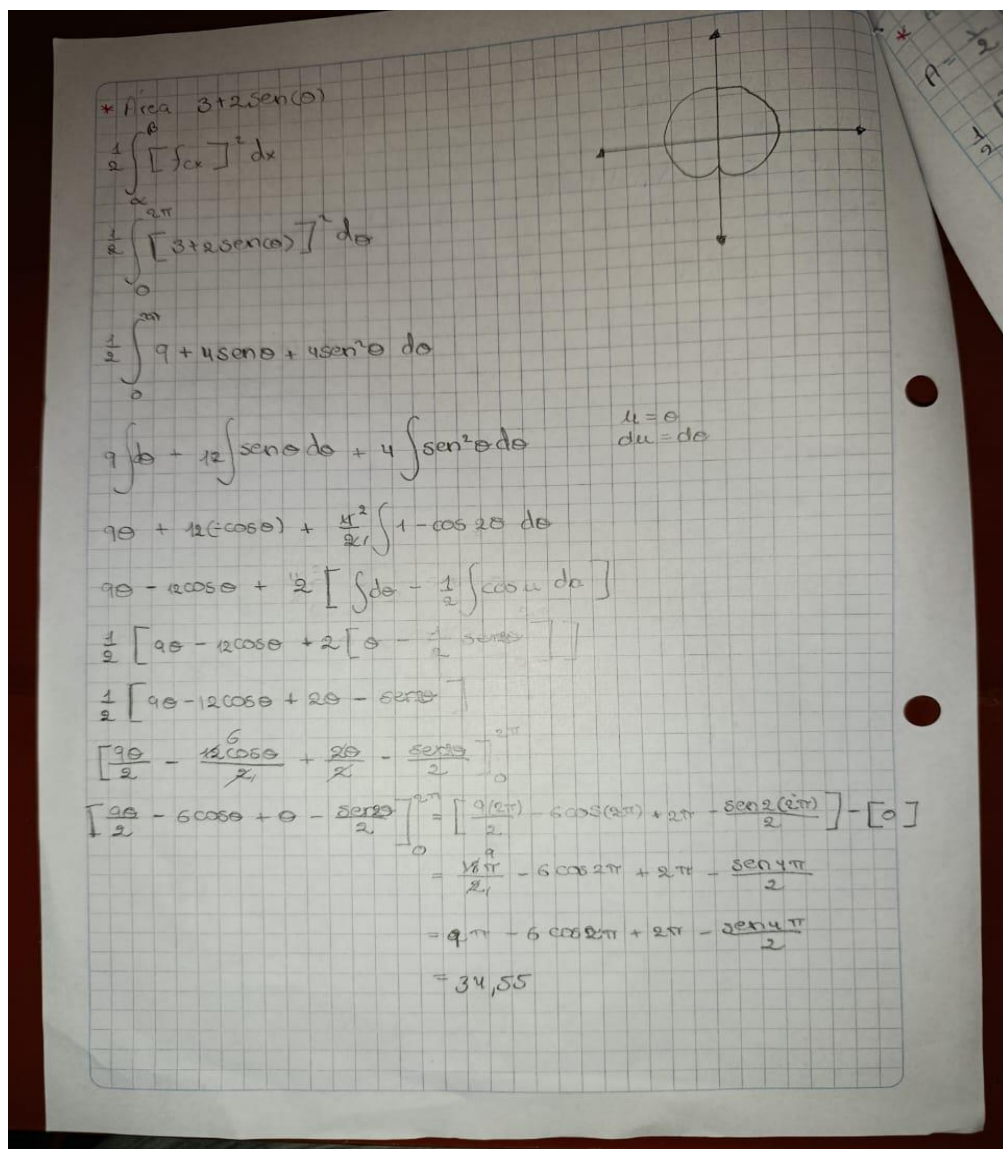 * Área 3+2sen(θ)
1/2 ∫_α^β [f(x)]² dx
1/2 ∫_0^2π [3+2sen(θ)]² dθ
1/2 ∫_0^2π 9 + 4senθ + 4sen²θ dθ
9∫dθ + 12∫senθ dθ + 4∫sen²θ dθ
u = θ
du = dθ
9θ + 12(-cosθ) + 4²/2₁ ∫1 - cos 2θ dθ
9θ - 12cosθ + 2 [∫dθ - 1/2 ∫cos u du]
1/2 [9θ - 12cosθ + 2[θ - 1/2 sen2θ]]
1/2 [9θ - 12cosθ + 2θ - sen2θ]
[9θ/2 - 12⁶cosθ/2₁ + 2θ/2 - sen2θ/2]_0^2π
[9θ/2 - 6cosθ + θ - sen2θ/2]_0^2π = [9(2π)/2 - 6cos(2π) + 2π - sen2(2π)/2] - [0]
= 18⁹π/2₁ - 6cos2π + 2π - sen4π/2
= 9π - 6cos2π + 2π - sen4π/2
= 34,55
*
A = 1/2
1/2